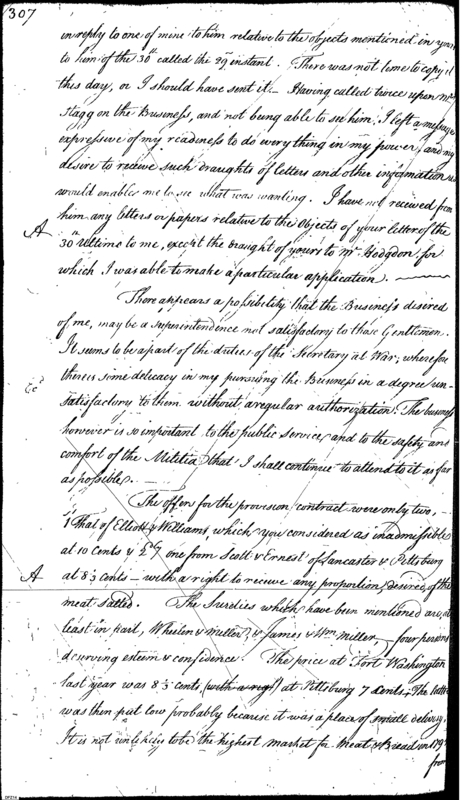 307
in reply to one of mine to him relative to the objects mentioned in your
to him of the 30th called the 29 instant. There was not time to copy it
this day, or I should have sent it – Having called twice upon Mr
Stagg on the Business, and not being able to see him, I left a message
expressive of my readiness to do everything in my power, and my
desire to receive such draughts of letters and other information as
would enable me to see what was wanting. I have not received from
him any letters or papers relative to the Objects of your letter of the
A
30th Ultimo to me, except the draught of yours to Mr Hodgdon for
which I was able to make a particular application.
There appears a possibility that the Business desired
of me, may be a superintendence not satisfactory to those Gentlemen.
It seems to be a part of the duties of the Secretary at War; wherefore
there is some delicacy in my pursuing the Business in a degree un-
satisfactory to them without a regular authorization. The business
however is so important to the public Service, and to the safety and
comfort of the Militia that I shall continue to attend to it as far
as possible.
The offers for the provision contract were only two,
1 That of Elliott & Williams, which you considered as inadmissible
at 10 Cents & one from Scott & Ernest of Lancaster & Pittsburg
A
at 8⅓ Cents – with a right to receive any proportion desired, of the
meat salted. The Sureties which have been mentioned are, at
least in part, Whelen & Miller, & James & Wm Miller, four persons
deserving esteem & confidence. The price at Fort Washington
last year was 8⅓ Cents, at Pittsburg 7 Cents. The latter
was then put low probably because it was a place of small delivery.
It is not unlikely to be the highest market for Meat & Bread in
from